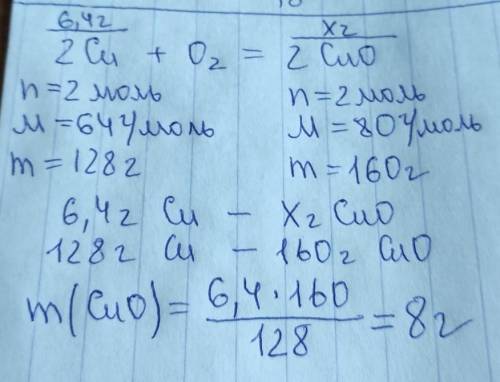 6,4г xг
2 Cu + O₂ = 2 CuO
n = 2 моль n = 2 моль
M = 64 г/моль M = 80 г/моль
m = 128 г m = 160 г
6,4 г Cu – xг CuO
128 г Cu – 160 г CuO
m(CuO) = 6,4·160 / 128 = 8 г